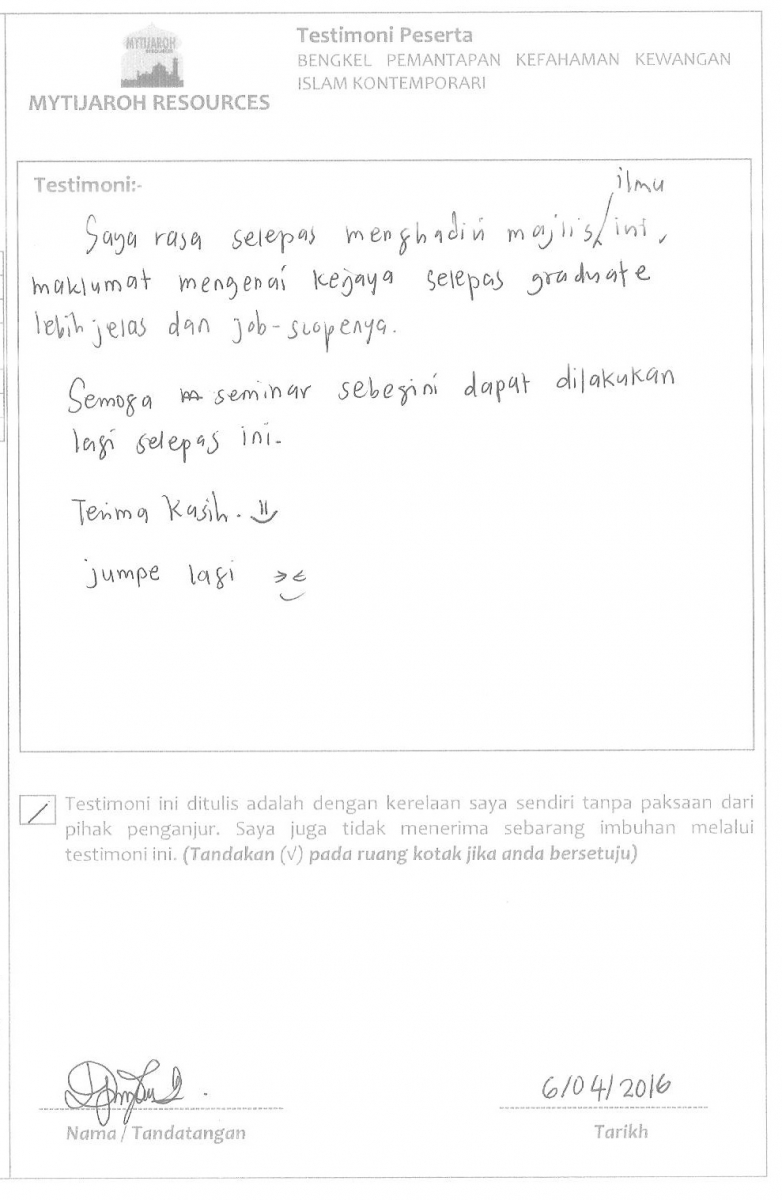 MYTIJAROH
RESOURCES
MYTIJAROH RESOURCES
Testimoni Peserta
BENGKEL PEMANTAPAN KEFAHAMAN KEWANGAN
ISLAM KONTEMPORARI
Testimoni:-
ilmu
Saya rasa selepas menghadiri majlis/ini,
maklumat mengenai kejaya selepas graduate
lebih jelas dan job-scopenya.
Semoga seminar sebegini dapat dilakukan
lagi selepas ini.
Terima Kasih.
jumpe lagi
Testimoni ini ditulis adalah dengan kerelaan saya sendiri tanpa paksaan dari
pihak penganjur. Saya juga tidak menerima sebarang imbuhan melalui
testimoni ini. (Tandakan (√) pada ruang kotak jika anda bersetuju)
6/04/2016
Nama / Tandatangan
Tarikh